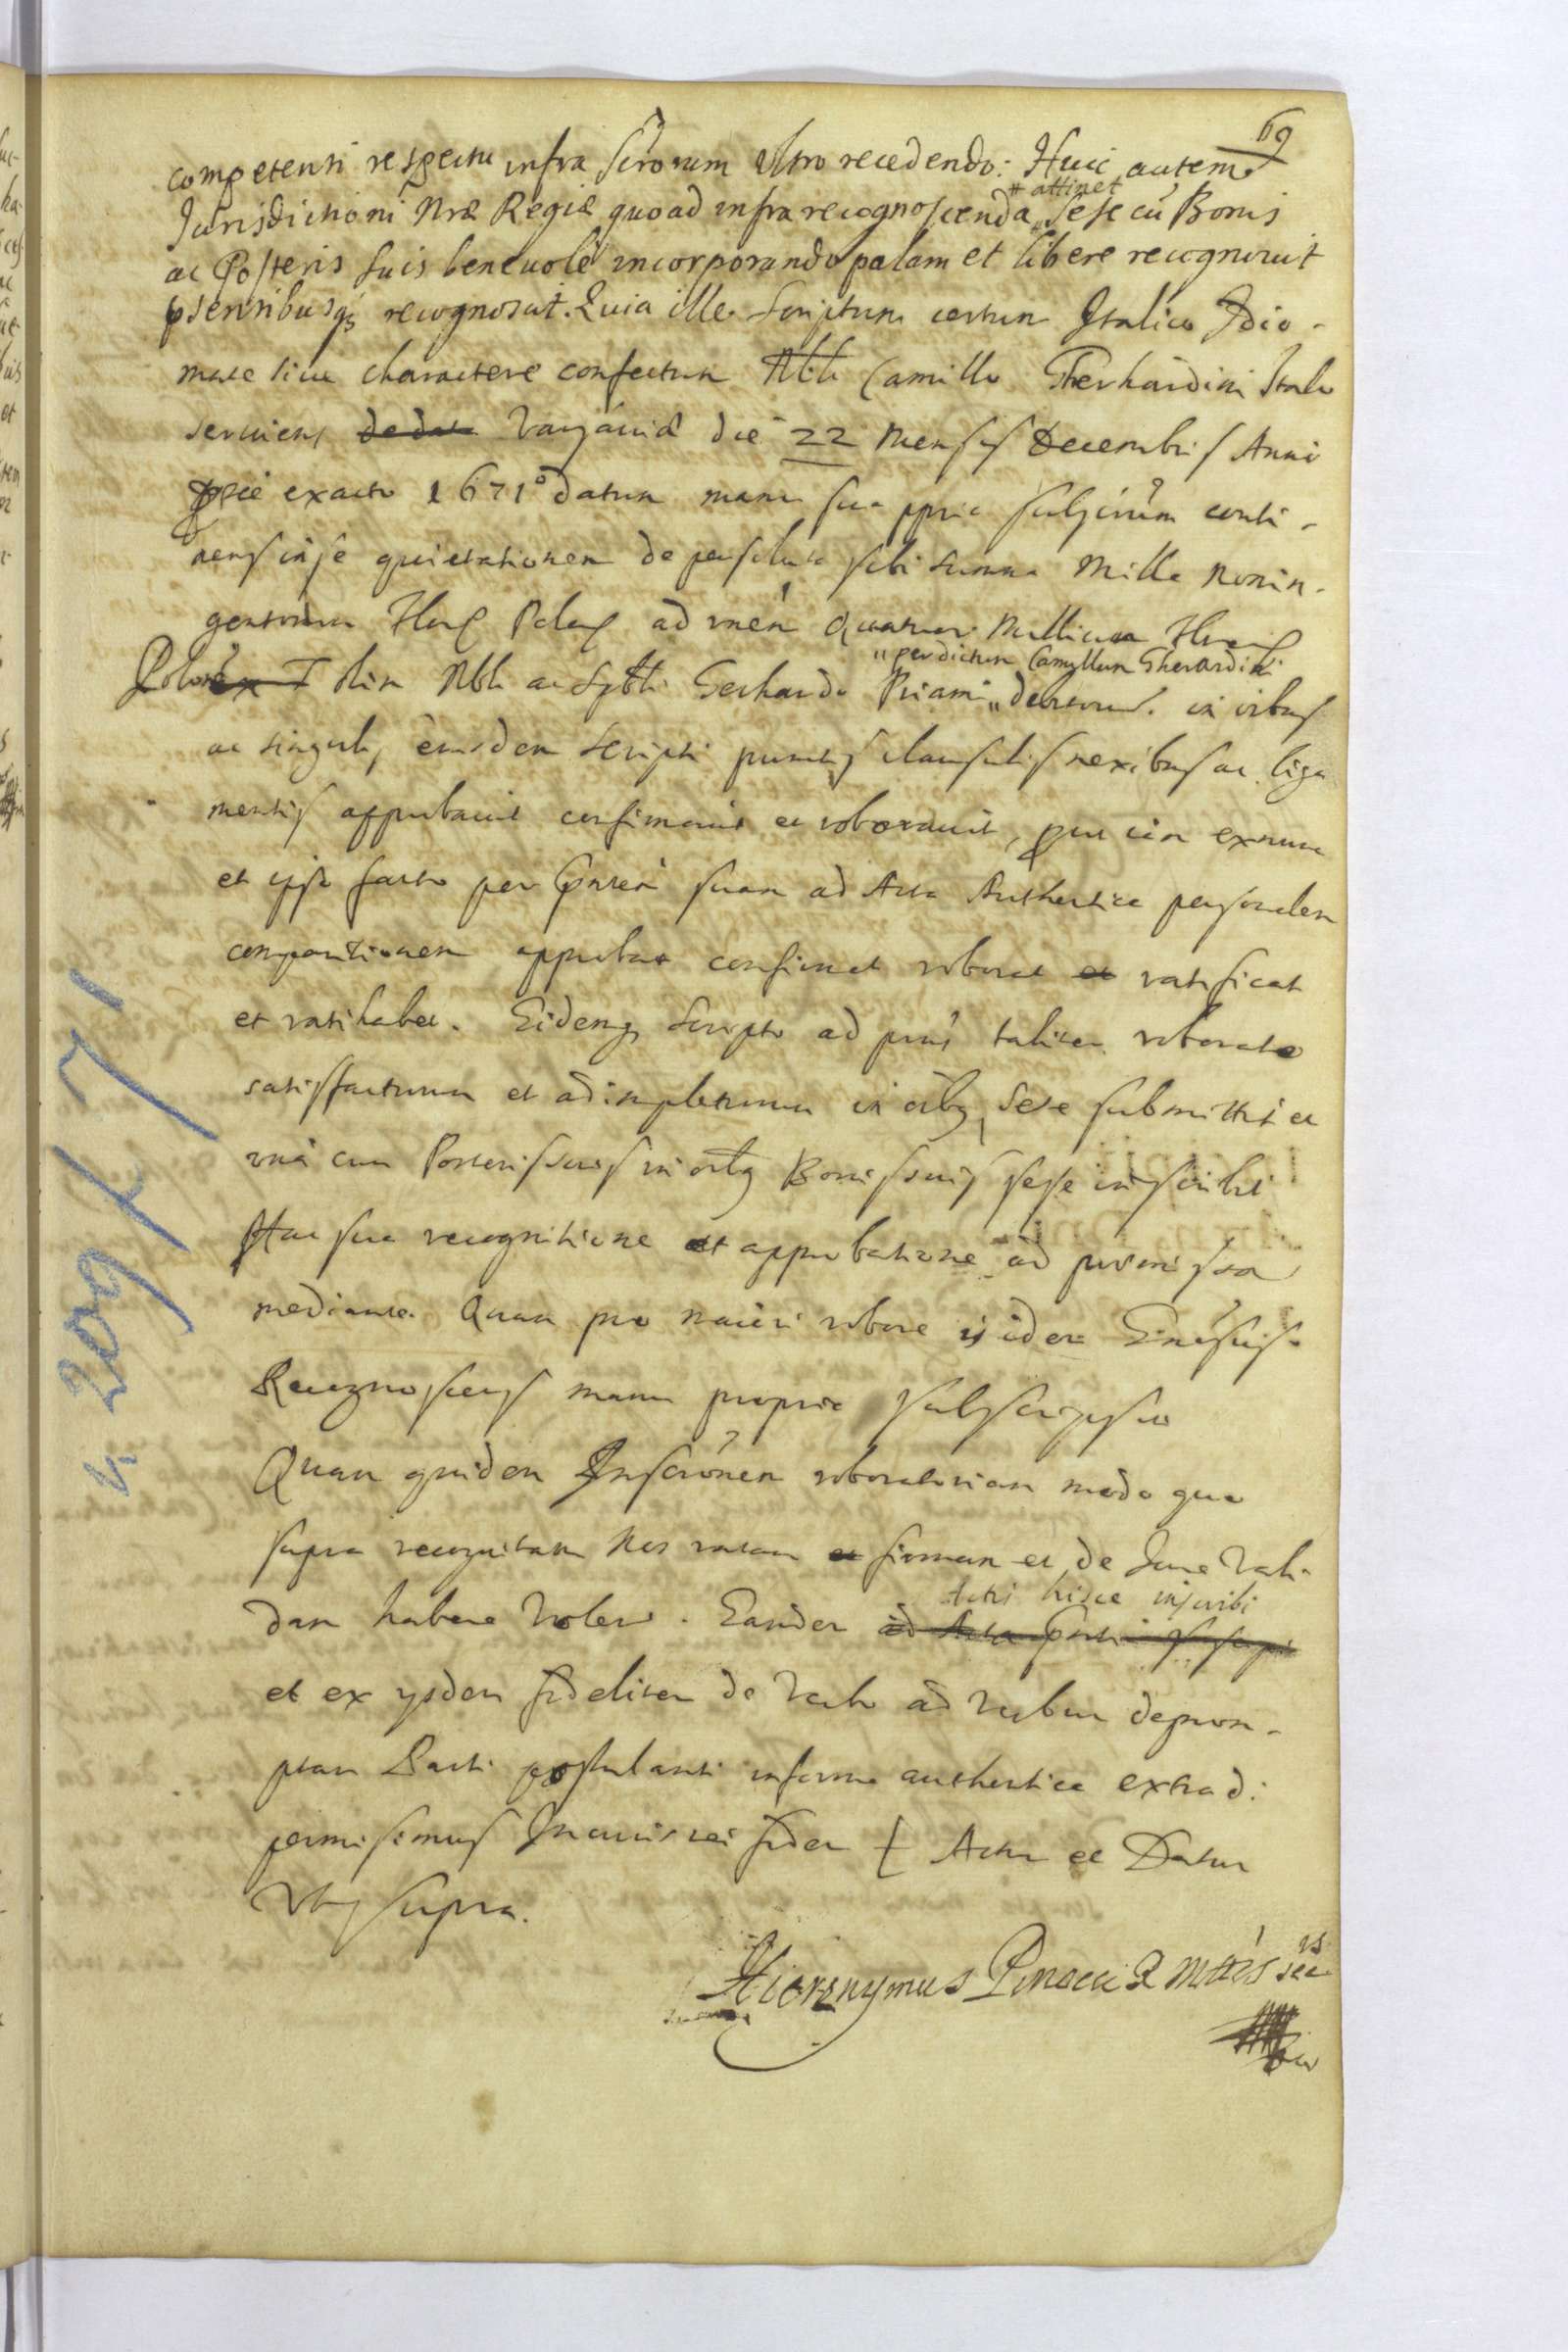 69
competenti respectu infra scrorum ultro recedendo: Huic autem
# attinet
Jurisdictioni Nrae Regiae quoad infra recognoscenda sese cũ Bonis
ac Posteris suis benevolè incorporando palam et libere recognovit
pñsentibusq; recognoscit. Quia ille Scriptum certum Italico Idio-
mate sive charactere confectum Nbli Camillo Gherhardini Italo
serviens de data Varsaviae die 22 Mensis Decembris Anni
prae exacto 1671° datum manu sua ppria subscriptum conti-
nens in se quietationem de persoluta sibi summa Mille nonin-
gentorum Flor Pol ad rnem Quatuor Millium Flor
" per dictum Camyllum Gherardini
Polon olim Nbli ac Spbli Gerhardo Priami " in oibus
ac singulis eiusdem scripti punctis clausulis nexibus ac liga
mentis approbavit confirmavit et roboravit, prout iam ex nunc
et ipso facto per pñtem suam ad Acta Authentica personalem
comparitionem approbat confirmat roborat et ratificat
et ratihabet. Eidemq; scripto ad praes taliter roborato
satisfacturum et adimpleturum in oibq sese submittit et
unà cum Posteris suis in oibq Bonis suis sese inscribit
Hac sua recognitione et approbatione ad praemissa
mediante. Quam pro maiori robore is idem
Recognoscens manu propria subscripsit
Quam quidem Inscrõnem roboratoriam modo quo
supra recognitam Nos ratam et firmam et de Jure Vali-
dam habere Volentes. Eandem ad Acta
Actis hisce inscribi
et ex ysdem fideliter de Verbo ad Verbum deprom-
ptam Parti postulanti in forma authentica extrad:
permisimus In cuius rei fidem Actum et Datum
Vts supra.
Hieronymus Pinocci R Mttis sec
4. 209 t 71